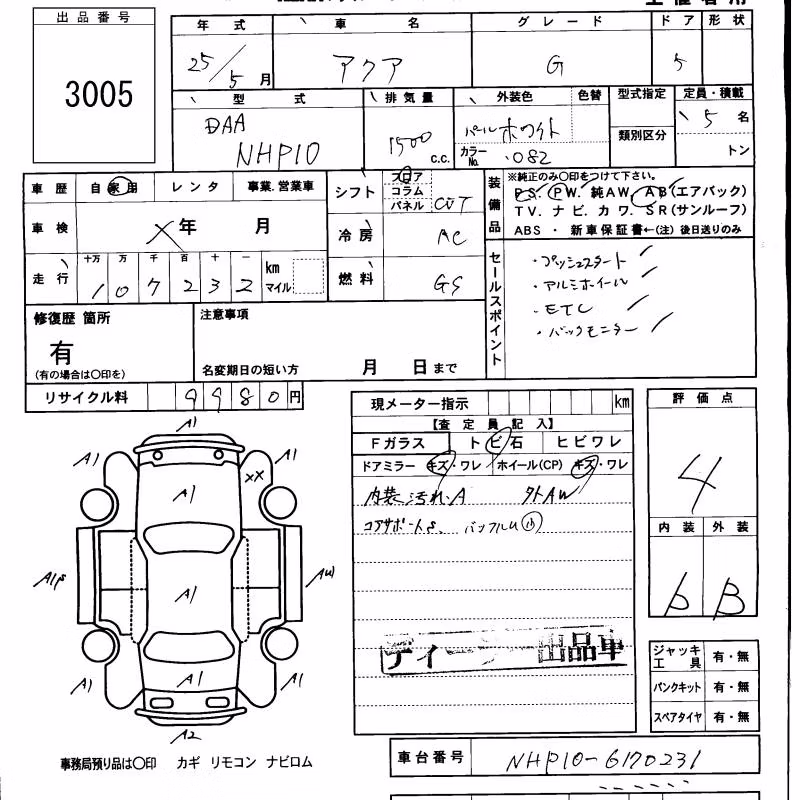 出品番号
3005
年式 車名 グレード ドア 形状
25/5月 アクア G 5
型式 排気量 外装色 色替 型式指定 定員・積載
DAA
NHP10
1500 c.c.
パールホワイト
カラーNo. 082
類別区分
5名
トン
車歴 自家用 レンタ 事業.営業車
車検 年 月
走行 十万 万 千 百 十 一
107232 km マイル
シフト フロア コラム パネル CVT
冷房 AC
燃料 GS
装備品
※純正のみ〇印をつけて下さい。
PS. PW. 純AW. AB(エアバック)
TV. ナビ. カワ. SR(サンルーフ)
ABS ・ 新車保証書←(注) 後日送りのみ
セールスポイント
・プッシュスタート
・アルミホイール
・ETC
・バックモニター
修復歴 箇所
有
(有の場合は〇印を)
注意事項
名変期日の短い方 月 日まで
リサイクル料 9980円
現メーター指示 km
【査定員記入】
Fガラス トビ石 ヒビワレ
ドアミラー キズ・ワレ ホイール(CP) キズ・ワレ
内装 汚れ.A 外AW
コアサポートS. バックパネルU
評価点
4
内装 外装
b B
A1
A1 A1
XX
A1
A1
A1
A1 A1
A1
A2
出品車
ジャッキ工具 有・無
パンクキット 有・無
スペアタイヤ 有・無
事務局預り品は〇印 カギ リモコン ナビロム
車台番号 NHP10-6170231